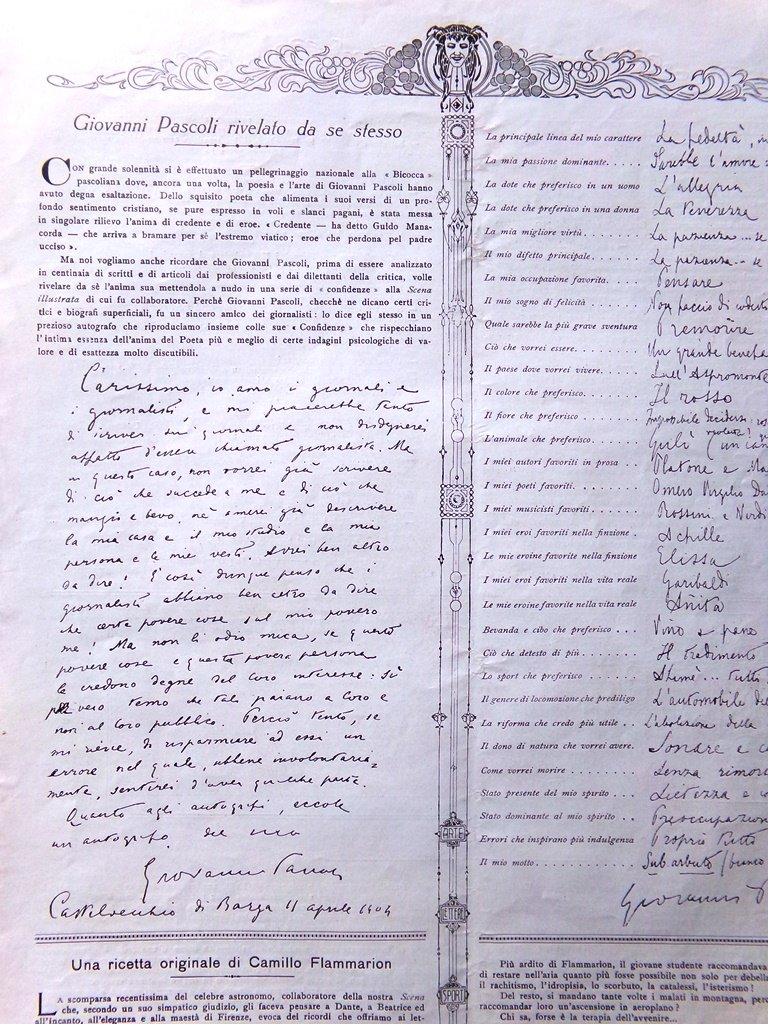 Giovanni Pascoli rivelato da se stesso
CON grande solennità si è effettuato un pellegrinaggio nazionale alla « Bicocca »
pascoliana dove, ancora una volta, la poesia e l'arte di Giovanni Pascoli hanno
avuto degna esaltazione. Dello squisito poeta che alimenta i suoi versi di un pro-
fondo sentimento cristiano, se pure espresso in voli e slanci pagani, è stata messa
in singolare rilievo l'anima di credente e di eroe. « Credente — ha detto Guido Mana-
corda — che arriva a bramare per sè l'estremo viatico; eroe che perdona pel padre
ucciso ».
Ma noi vogliamo anche ricordare che Giovanni Pascoli, prima di essere analizzato
in centinaia di scritti e di articoli dai professionisti e dai dilettanti della critica, volle
rivelare da sè l'anima sua mettendola a nudo in una serie di « confidenze » alla Scena
illustrata di cui fu collaboratore. Perchè Giovanni Pascoli, checchè ne dicano certi cri-
tici e biografi superficiali, fu un sincero amico dei giornalisti: lo dice egli stesso in un
prezioso autografo che riproduciamo insieme colle sue « Confidenze » che rispecchiano
l'intima essenza dell'anima del Poeta più e meglio di certe indagini psicologiche di va-
lore e di esattezza molto discutibili.
Carissimo, io amo i giornali e
i giornalisti, e mi piacerebbe tanto
di scriver sui giornali e non disdegnerei
affatto d'esser chiamato giornalista. Ma
in questo caso, non vorrei già scrivere
di ciò che succede a me e di ciò che
mangio e bevo, nè amerei già descrivere
la mia casa e il mio studio e la mia
persona e le mie vesti. Avrei ben altro
da dire! E così dunque penso che i
giornalisti abbiano ben altro da dire
che certe povere cose sul mio povero
me! Ma non li odio mica, se queste
povere cose e questa povera persona
le credono degne del loro interesse: sì
vero temo che tali paiano a loro e
non al loro pubblico. Perciò tento, se
mi riesce, di risparmiare ad essi un
errore nel quale, ebbene involontaria-
mente, sentirei d'aver qualche parte.
Quanto agli autografi, eccole
un autografo del suo
Giovanni Pascoli
Castelvecchio di Barga 11 aprile 1904
Una ricetta originale di Camillo Flammarion
LA scomparsa recentissima del celebre astronomo, collaboratore della nostra Scena
che, secondo un suo simpatico giudizio, gli faceva pensare a Dante, a Beatrice ed
all'incanto, all'eleganza e alla maestà di Firenze, evoca dei ricordi che offriamo ai let-
ARTE
LETTERE
SPORT
La principale linea del mio carattere La fedeltà,
La mia passione dominante..... Sarebbe l'amore
La dote che preferisco in un uomo L'allegria
La dote che preferisco in una donna La tenerezza
La mia migliore virtù...... La pazienza... se
Il mio difetto principale..... La pazienza... se
La mia occupazione favorita.... Pensare
Il mio sogno di felicità....... Non faccio di codesti
Quale sarebbe la più grave sventura Premorire
Ciò che vorrei essere........ Un grande
Il paese dove vorrei vivere..... Sull'Aspromonte
Il colore che preferisco...... Il rosso
Il fiore che preferisco...... Impossibile decidersi:
L'animale che preferisco..... Gulì (un can
I miei autori favoriti in prosa.. Platone e
I miei poeti favoriti...... Omero Virgilio
I miei musicisti favoriti..... Rossini e Verdi
I miei eroi favoriti nella finzione. Achille
Le mie eroine favorite nella finzione Elissa
I miei eroi favoriti nella vita reale Garibaldi
Le mie eroine favorite nella vita reale Anita
Bevanda e cibo che preferisco... Vino e pane
Ciò che detesto di più....... Il tradimento
Lo sport che preferisco...... Ahimè... tutti
Il genere di locomozione che prediligo L'automobile
La riforma che credo più utile.. L'abolizione della
Il dono di natura che vorrei avere. Sonare e
Come vorrei morire......... Senza
Stato presente del mio spirito.... Lietezza e
Stato dominante al mio spirito.. Preoccupazion
Errori che inspirano più indulgenza Proprio tutti
Il mio motto............ Sub arbuto
Giovanni P
Più ardito di Flammarion, il giovane studente raccomandava
di restare nell'aria quanto più fosse possibile non solo per debella
il rachitismo, l'idropisia, lo scorbuto, la catalessi, l'isterismo!
Del resto, si mandano tante volte i malati in montagna, perc
raccomandar loro un'ascensione in aeroplano?
Chi sa, forse è la terapia dell'avvenire...